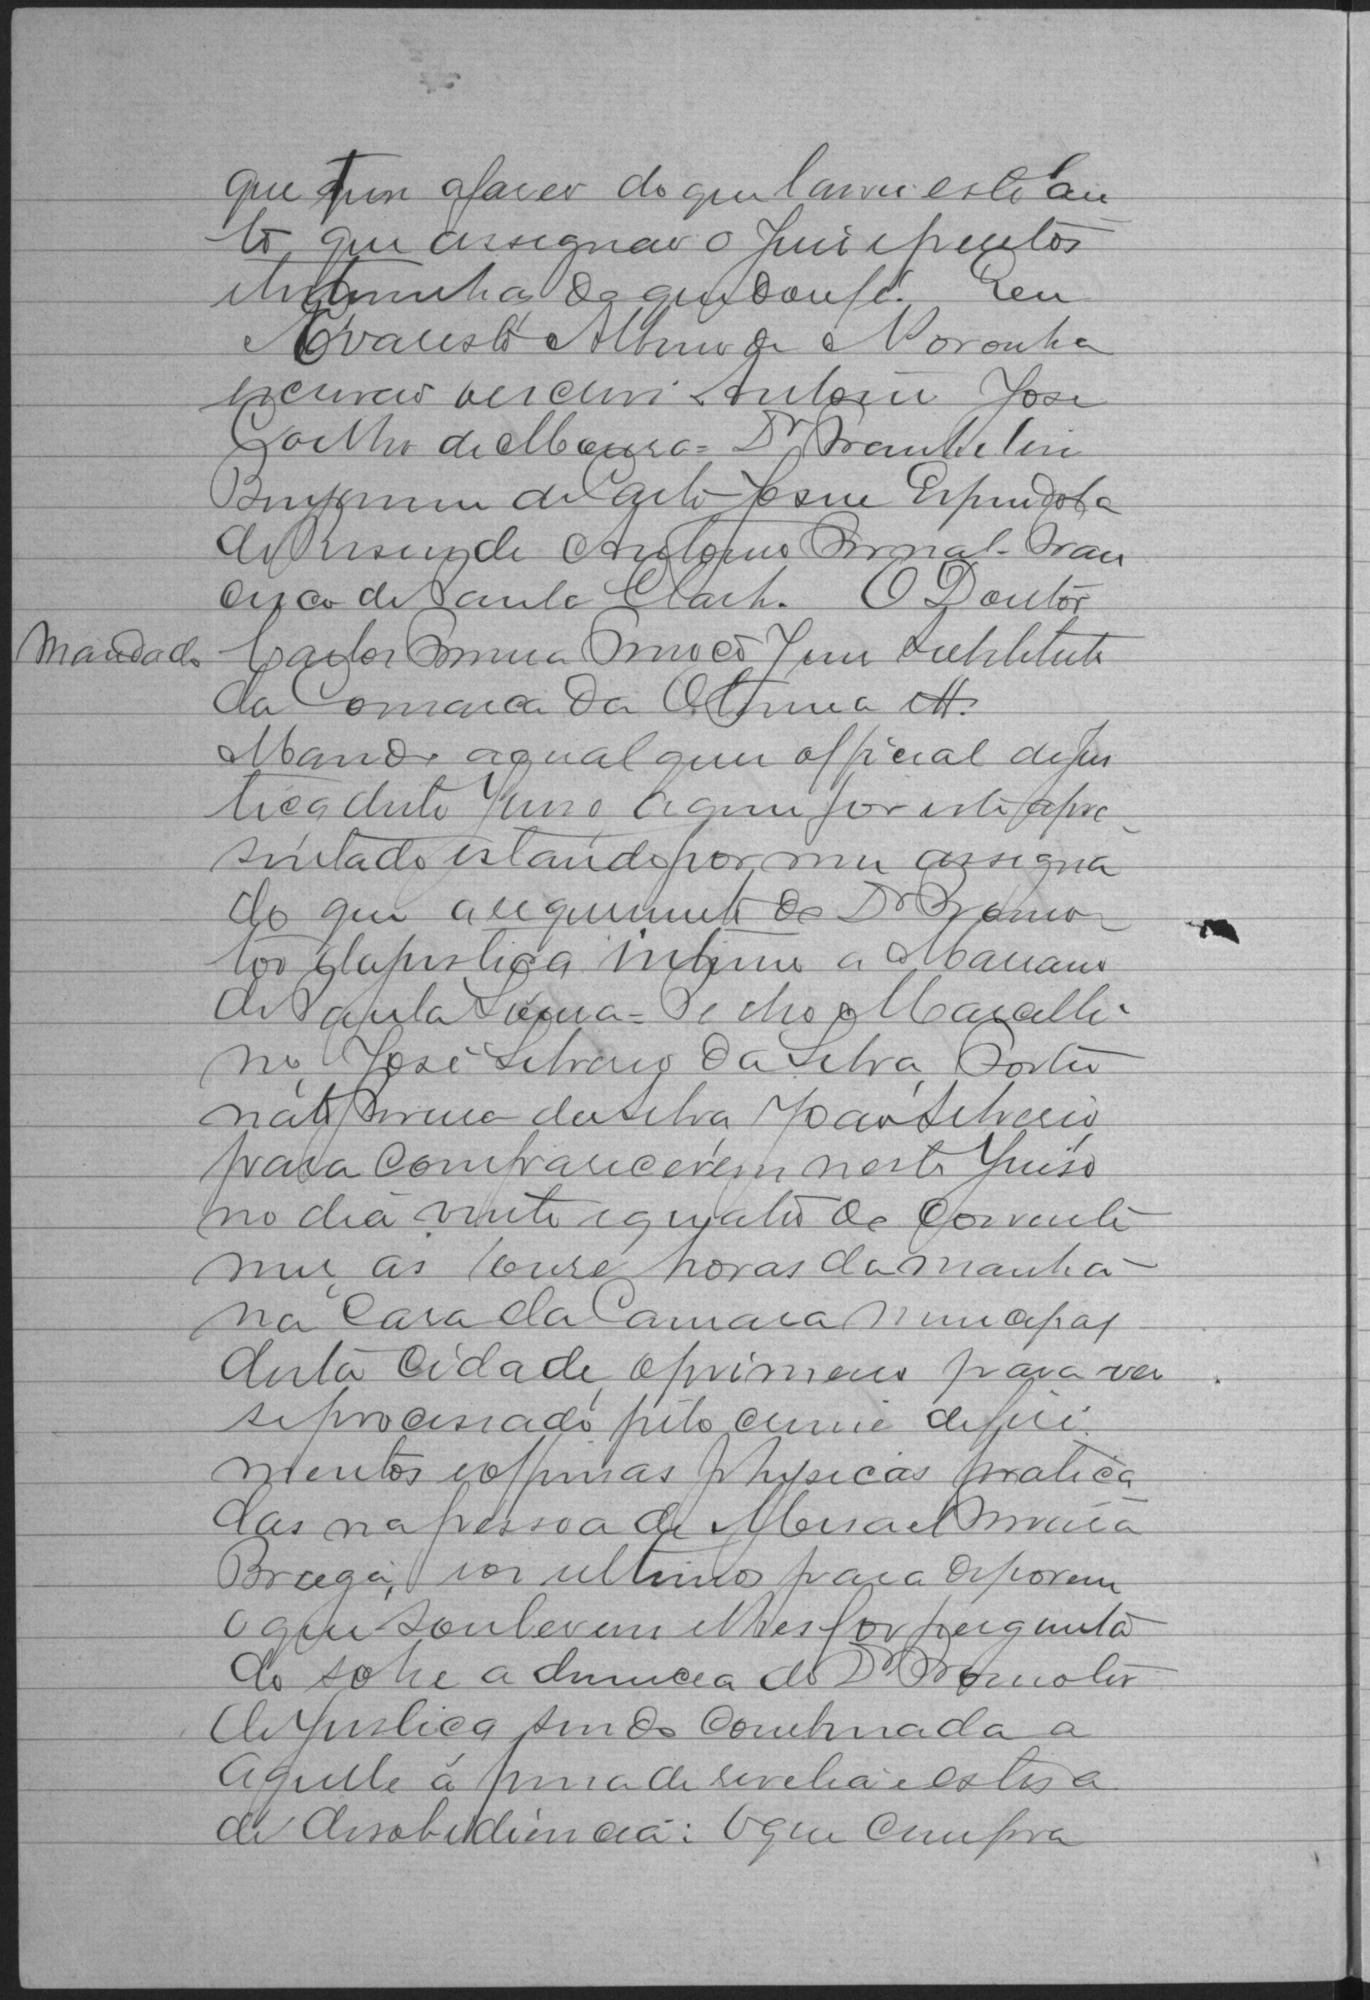 que tem afaser do que lavrei este au
to que assignão o Juiz e peritos
e testemunhas do que dou fé. Eeu
Evaristo Albino de Noronha
escrivão o escrevi Antonio Jose
Coelho de Moura = Dr Franklin
Benjamim de Castro Josue Espindola
de Resende Antonio Fran
cisco de Paula Clark. O Doutor
Mandado Carlos Juiz Substituto
da Comarca da Oliveira &.
Mando a qualquer official de Jus
tiça deste Juiso a quem for este apre
sentado estando por mim assigna
do que a requerimento do Dr Promo
tor da justiça intime a Mariano
de Paula Lima = Marcelli
no, José Silverio da Silva,
da Silva João Silverio
para comparecerem neste Juiso
no dia vinte e quatro do corrente
mez as onze horas da manhã
na Casa da Camara municipal
desta cidade, o primeiro para ver
se processado pelo crime de feri
mentos e offensas physicas pratica
das na pessoa de Misael
Braga, e os ultimos para deporem
o que souberem e lhes for pergunta
do sobre a denuncia do Dr Promotor
de Justiça sendo comminada a
aquelle á pena de revelia e estes a
de desobediencia: O que cumpra